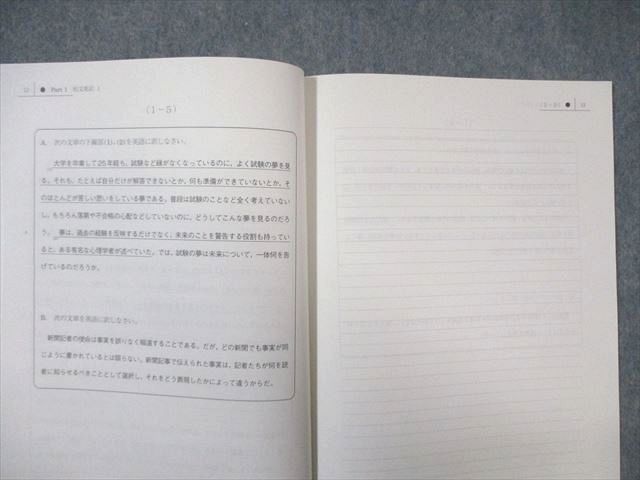 12 ● Part 1 和文英訳 1
(1-5)
A. 次の文章の下線部(1), (2)を英語に訳しなさい。
大学を卒業して25年経ち, 試験など縁がなくなっているのに, よく試験の夢を見
る。それも, たとえば自分だけが解答できないとか, 何も準備ができていないとか, そ
のほとんどが苦しい思いをしている夢である。普段は試験のことなど全く考えていない
し, もちろん落第や不合格の心配などしていないのに, どうしてこんな夢を見るのだろ
う。夢は, 過去の経験を反映するだけでなく, 未来のことを警告する役割も持ってい
ると, ある有名な心理学者が述べていた。では, 試験の夢は未来について, 一体何を告
げているのだろうか。
B. 次の文章を英語に訳しなさい。
新聞記者の使命は事実を誤りなく報道することである。だが, どの新聞でも事実が同
じように書かれているとは限らない。新聞記事で伝えられた事実は, 記者たちが何を読
者に知らせるべきこととして選択し, それをどう表現したかによって違うからだ。
● 13